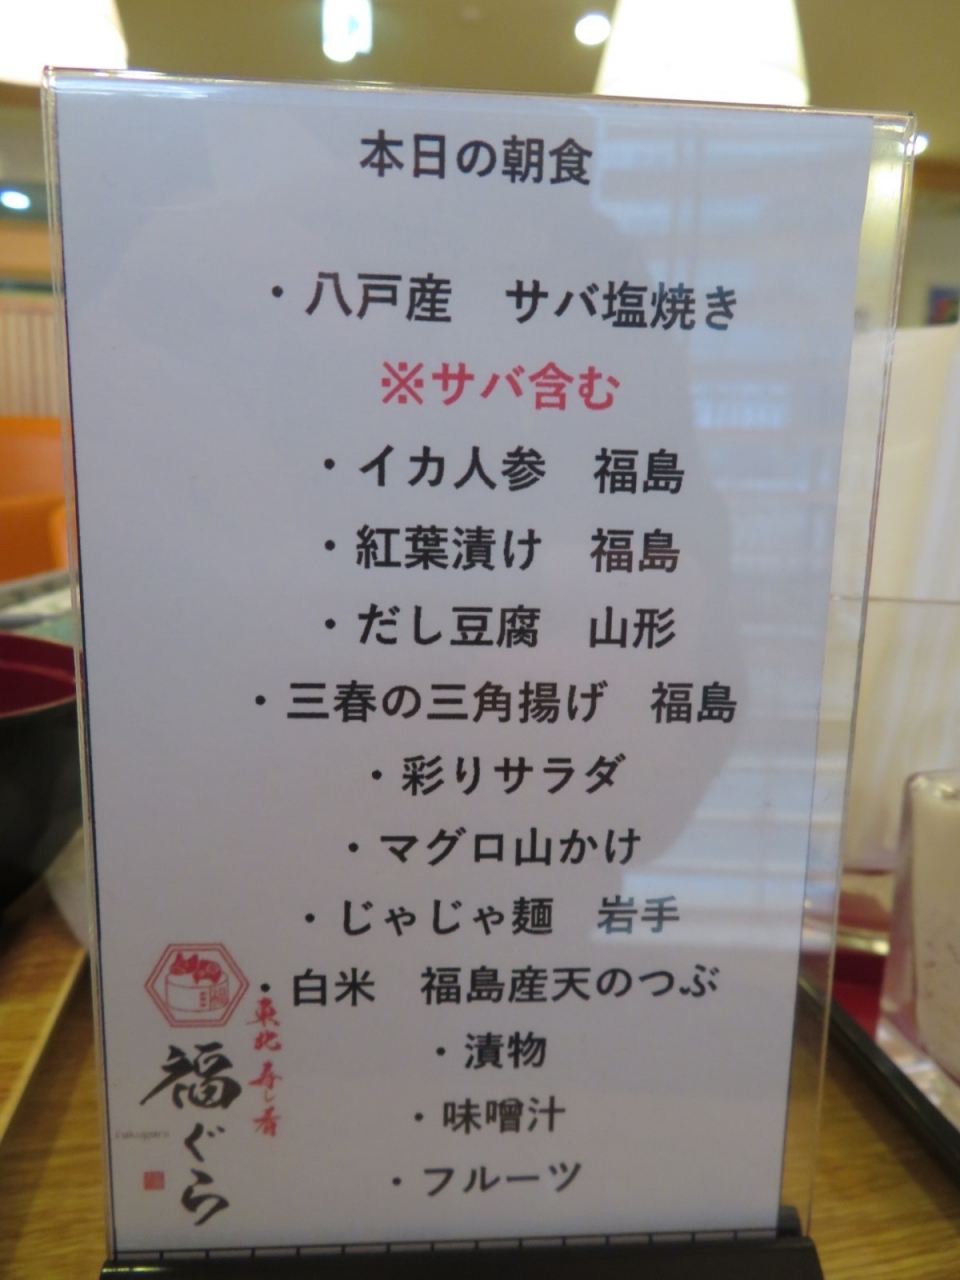 本日の朝食
・八戸産　サバ塩焼き
※サバ含む
・イカ人参　福島
・紅葉漬け　福島
・だし豆腐　山形
・三春の三角揚げ　福島
・彩りサラダ
・マグロ山かけ
・じゃじゃ麺　岩手
・白米　福島産天のつぶ
・漬物
・味噌汁
・フルーツ
東北 寿し肴
福ぐら